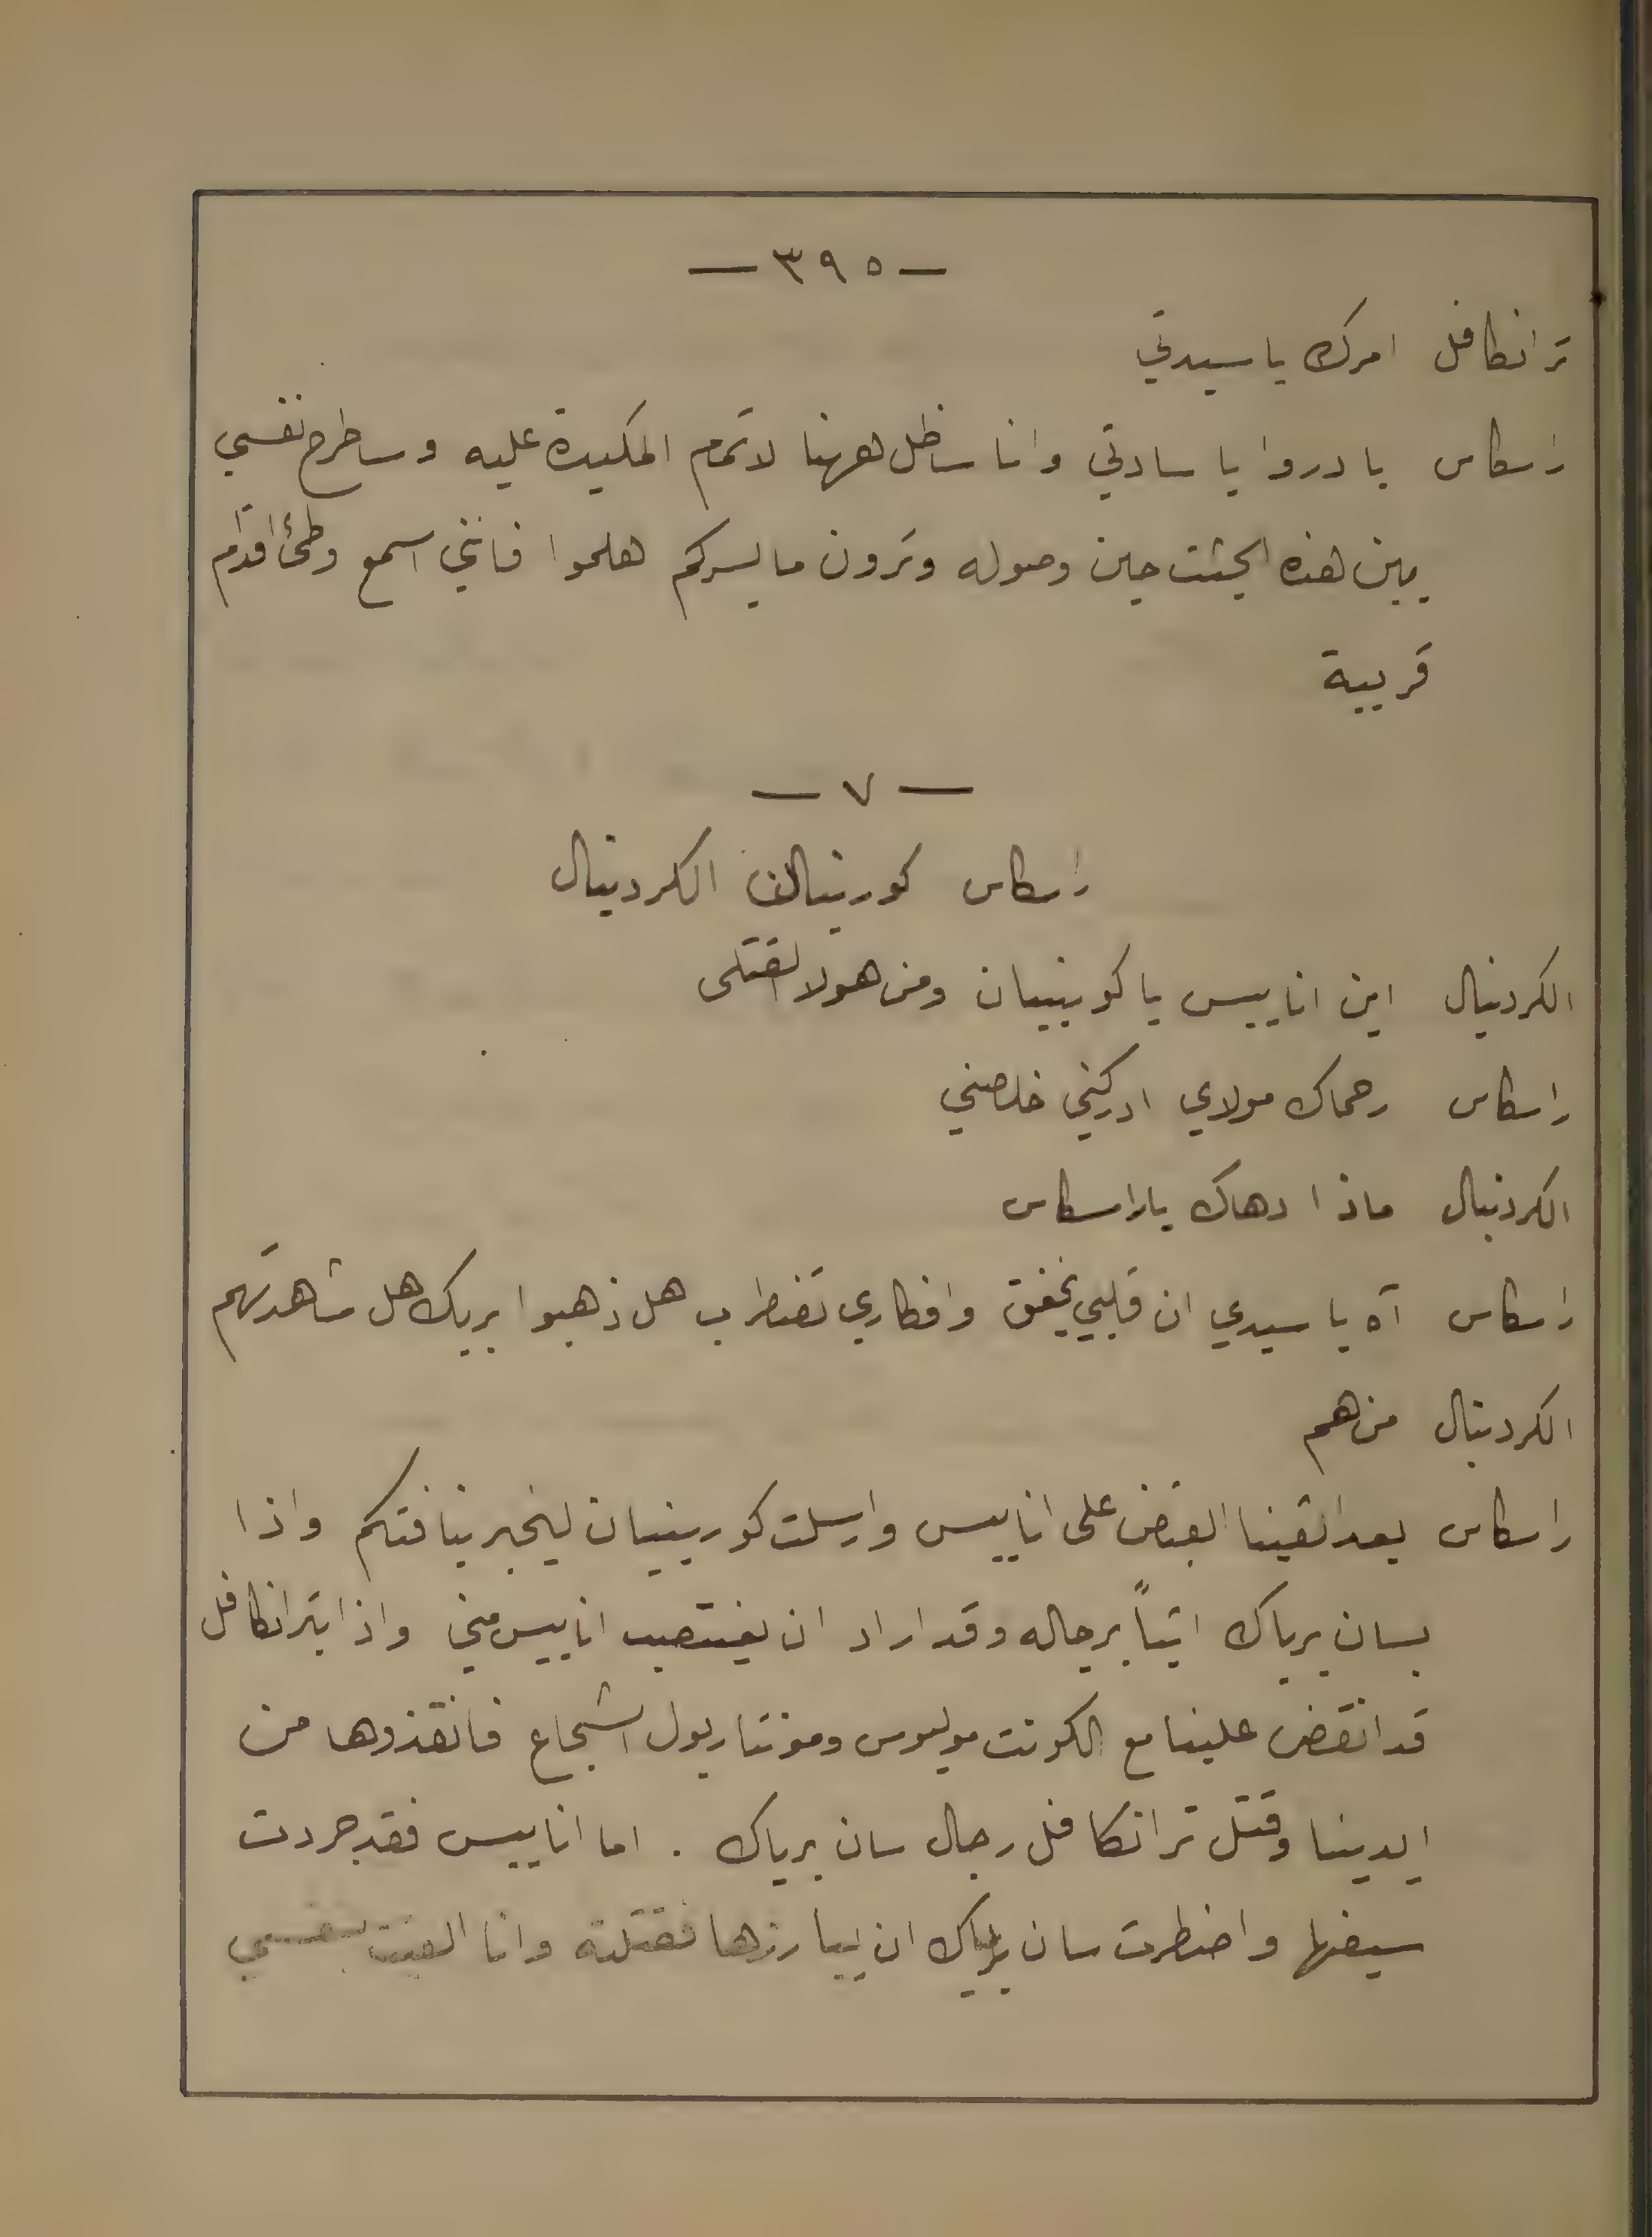 — ٣٩٥ —
ترانكافل امرك يا سيدتي
راسكاس بادروا يا سادتي وانا ساظل ههنا لاتمام المكيدة عليه وساطرح نفسي
بين هذه الجثث حين وصوله وترون ما يسركم هلموا فانني اسمع وطئ اقدام
قريبة
— ٧ —
راسكاس كورينيان الكردينال
الكردينال اين اناييس يا كورينيان ومن هولا القتلى
راسكاس رحماك مولاي ادركني خلصني
الكردينال ماذا دهاك ياراسكاس
راسكاس آه يا سيدي ان قلبي يخفق وافكاري تضطرب هل ذهبوا بربك هل شاهدتهم
الكردينال من هم
راسكاس بعد القينا القبض على اناييس وارسلت كورينيان ليخبر نيافتكم واذا
بسان برياك اتياً برجاله وقد اراد ان يغتصب اناييس مني واذا بترانكافل
قد انقض علينا مع الكونت موليوس ومونتاريول الشجاع فانقذوها من
ايدينا وقتل ترانكافل رجال سان برياك . اما اناييس فقد جردت
سيفها واضطرت سان برياك ان يبارزها فقتلته وانا القيت بنفسي